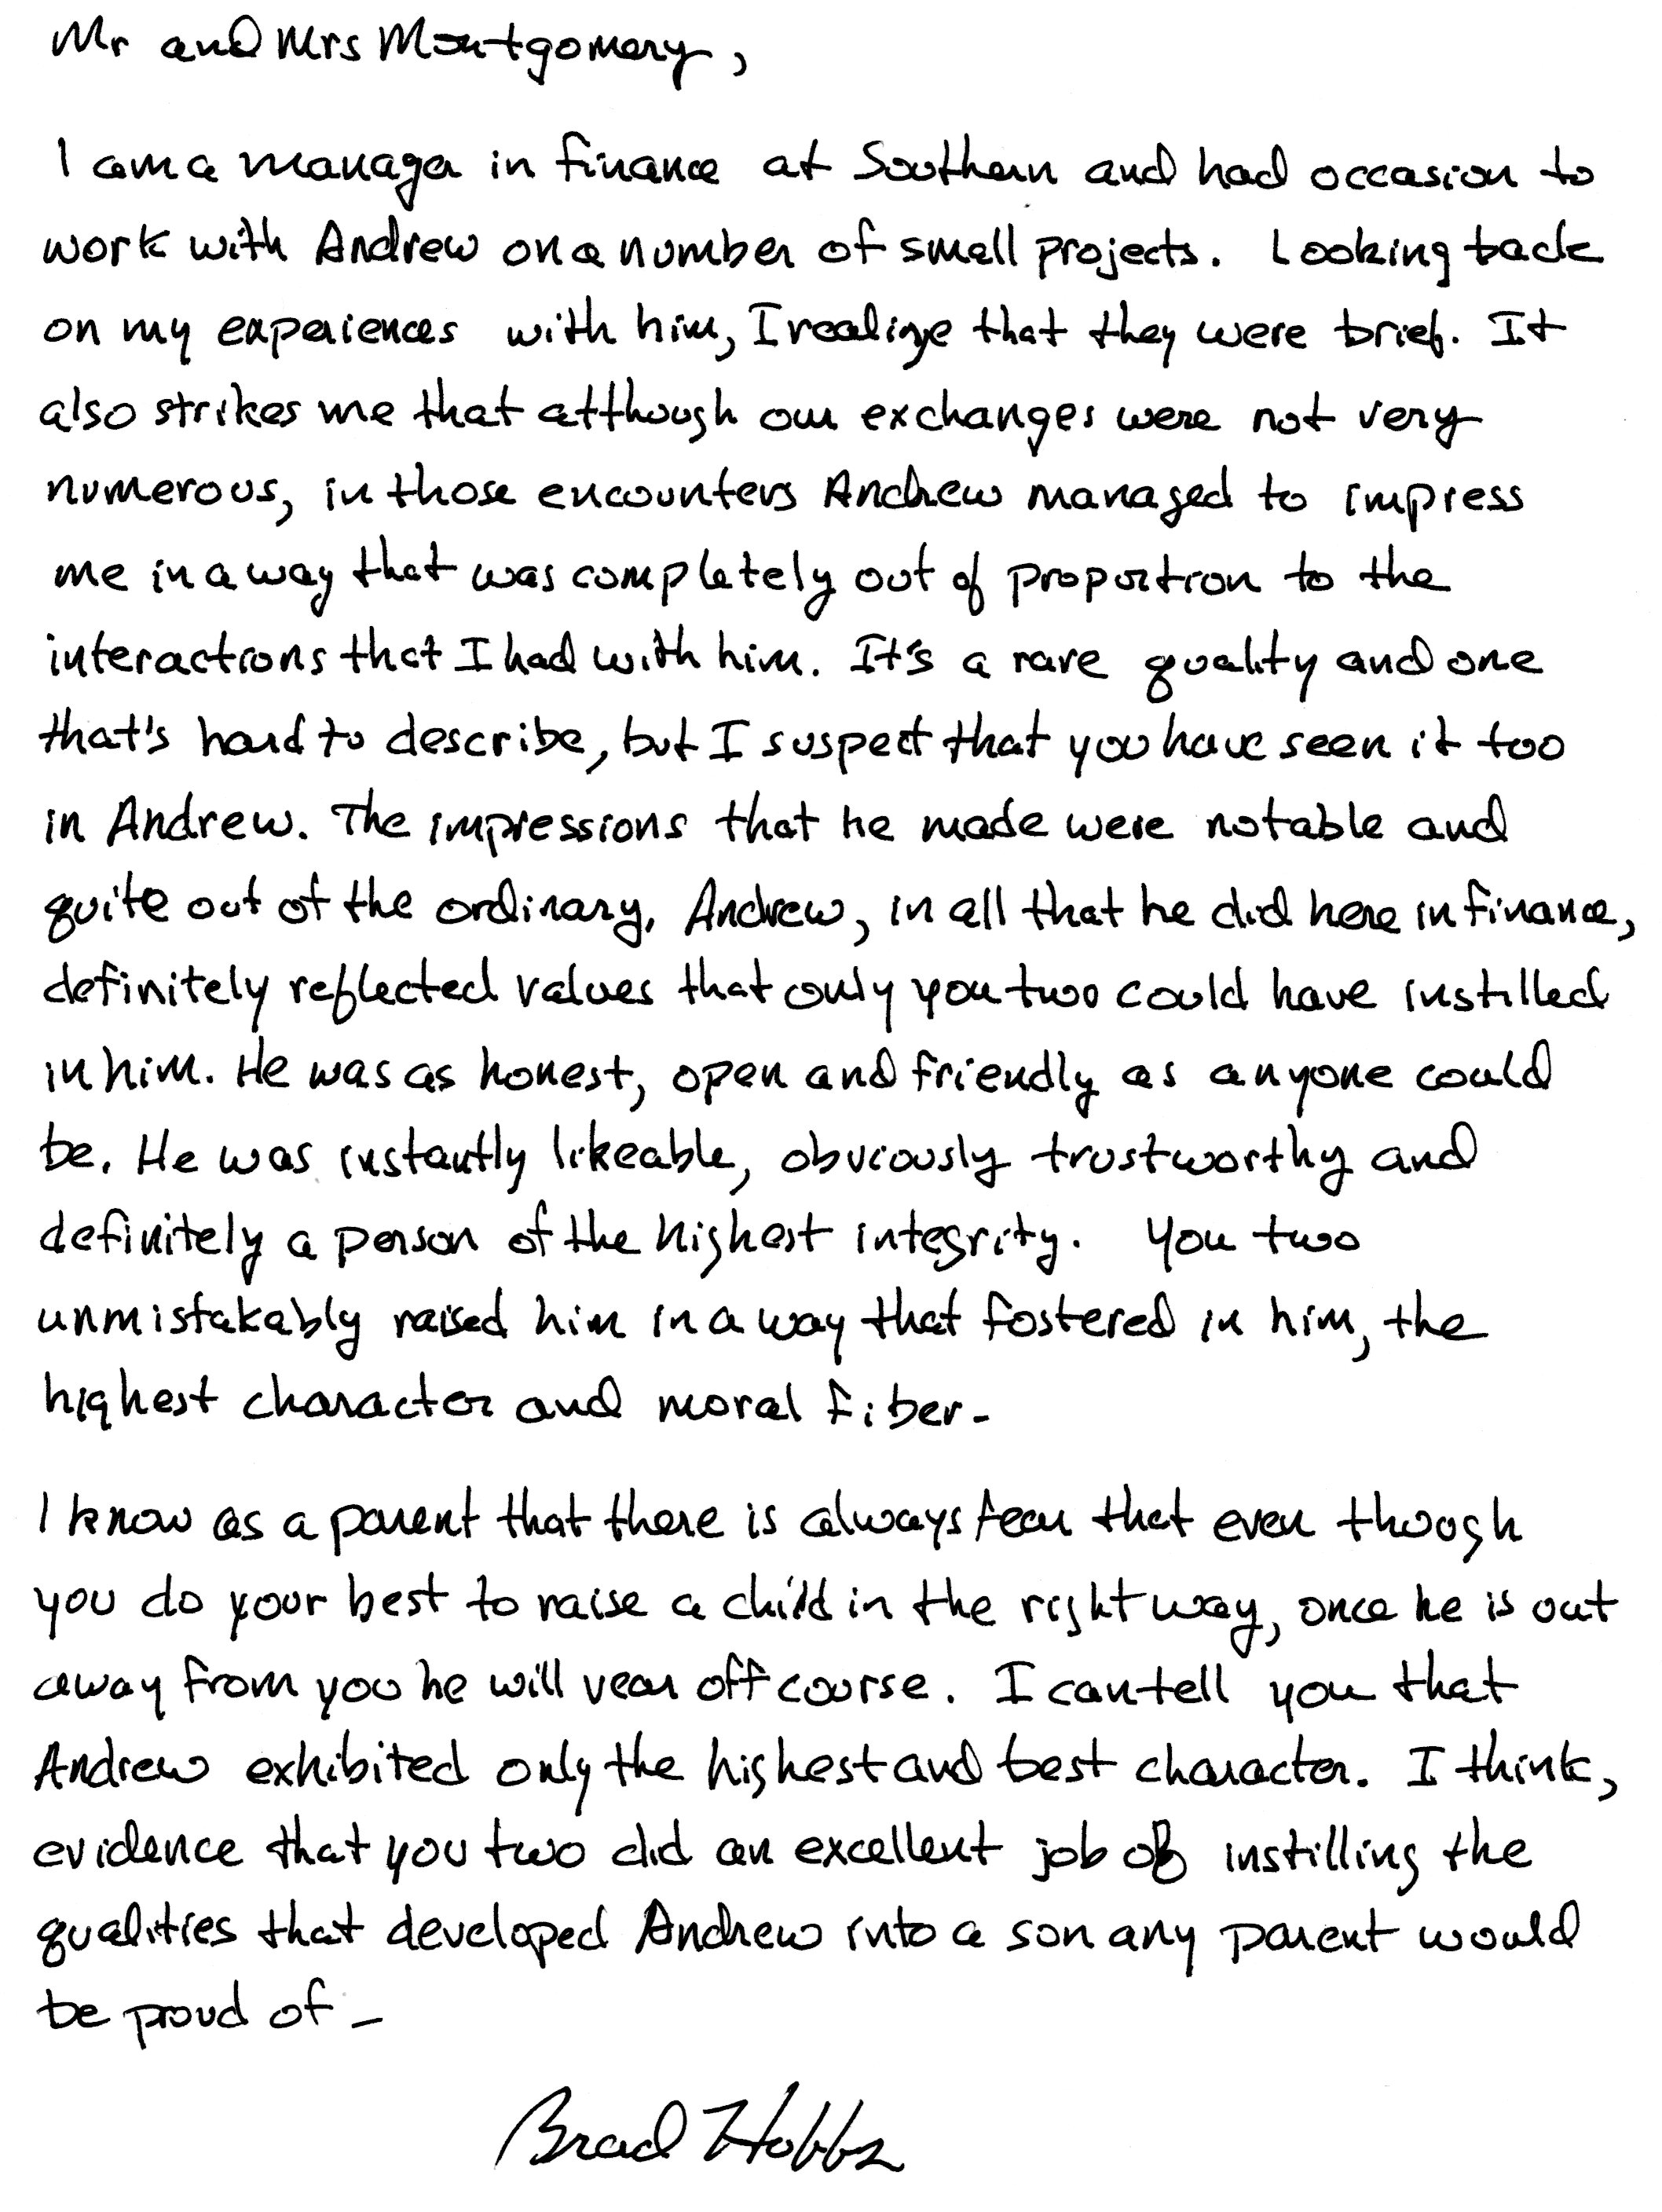 Mr and Mrs Montgomery,
I am a manager in finance at Southern and had occasion to
work with Andrew on a number of small projects. Looking back
on my experiences with him, I realize that they were brief. It
also strikes me that although our exchanges were not very
numerous, in those encounters Andrew managed to impress
me in a way that was completely out of proportion to the
interactions that I had with him. It's a rare quality and one
that's hard to describe, but I suspect that you have seen it too
in Andrew. The impressions that he made were notable and
quite out of the ordinary. Andrew, in all that he did here in finance,
definitely reflected values that only you two could have instilled
in him. He was as honest, open and friendly as anyone could
be. He was instantly likeable, obviously trustworthy and
definitely a person of the highest integrity. You two
unmistakably raised him in a way that fostered in him, the
highest character and moral fiber-
I know as a parent that there is always fear that even though
you do your best to raise a child in the right way, once he is out
away from you he will vear off course. I can tell you that
Andrew exhibited only the highest and best character. I think,
evidence that you two did an excellent job of instilling the
qualities that developed Andrew into a son any parent would
be proud of -
Brad Hobbs